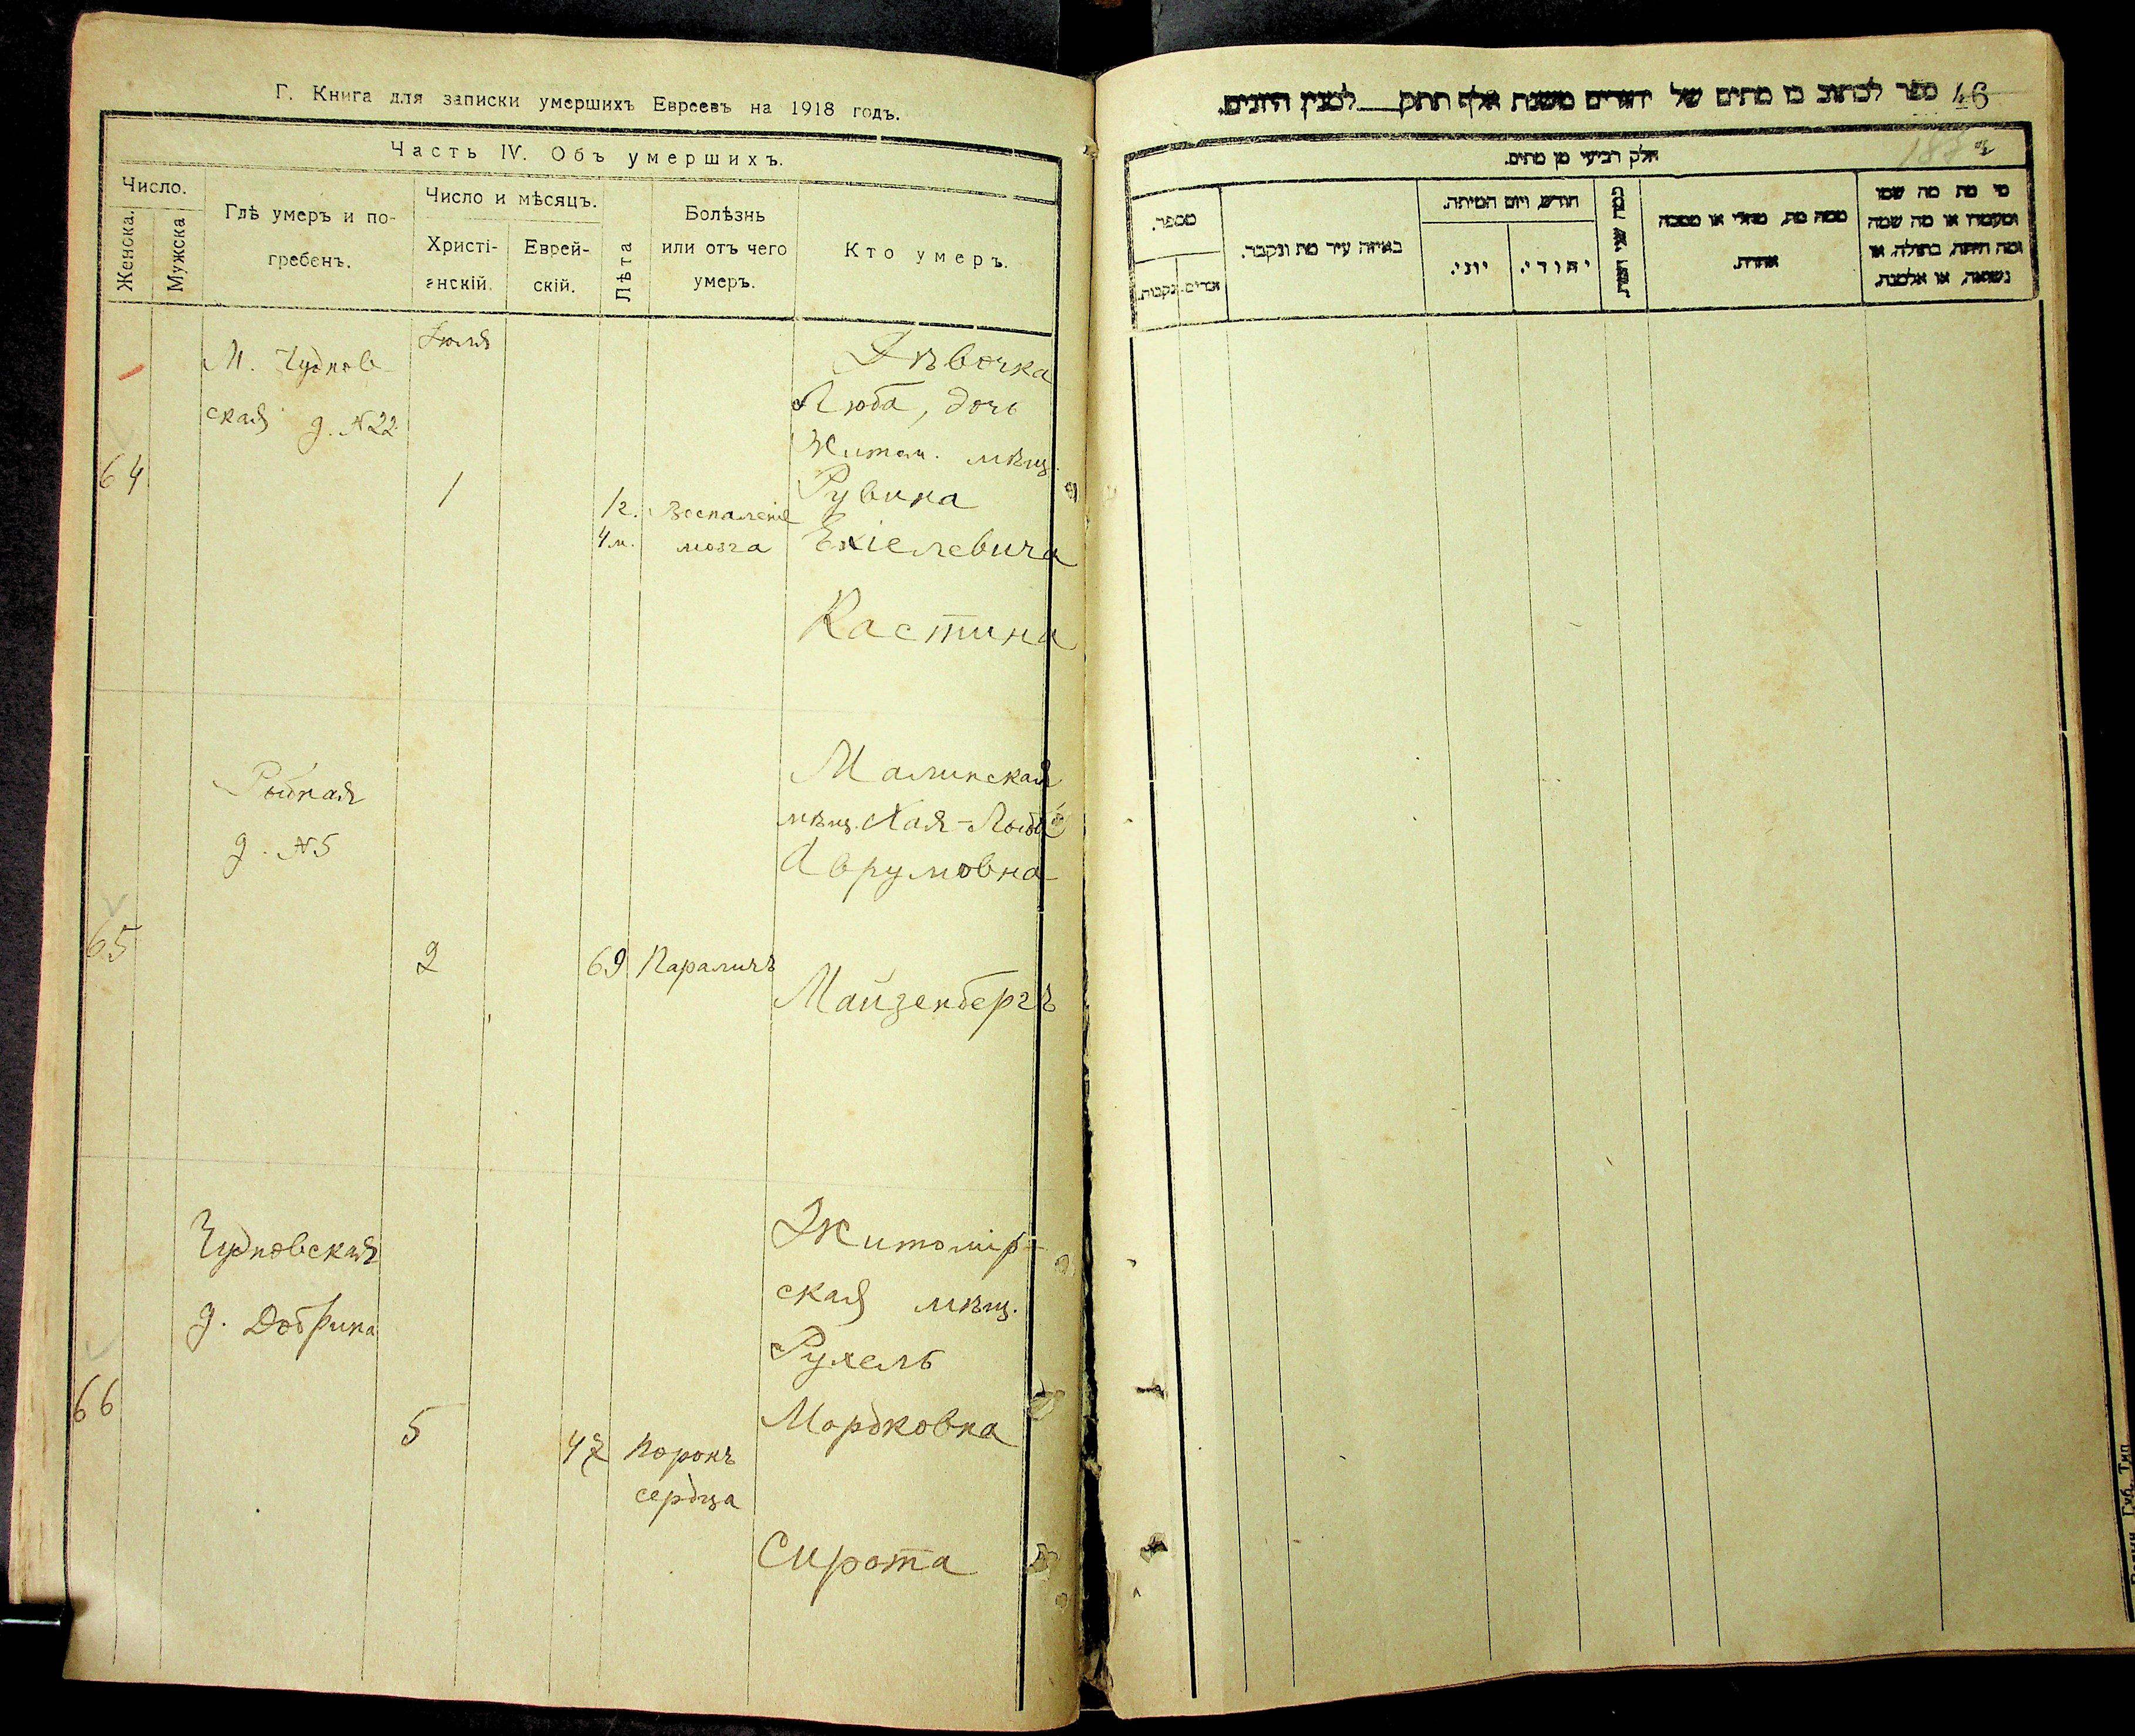 Г. Книга для записки умершихъ Евреевъ на 1918 годъ.
Часть IV. Объ умершихъ.
Число.
Женска.
Мужска
Гдѣ умеръ и по-
гребенъ.
Число и мѣсяцъ.
Христі-
анскій.
Еврей-
скій.
Лѣта
Болѣзнь
или отъ чего
умеръ.
Кто умеръ.
64
М. Чуднов
ская д. №22
Іюля
1
1г.
4м.
Воспаленіе
мозга
Дѣвочка
Люба, дочь
Житом. мѣщ.
Рувина
Ехіелевича
Кастина
65
Рыбная
д. №5
2
69
Параличъ
Малинская
мѣщ. Хая-
Аврумовна
Майзенбергъ
66
Чудновская
д. Добрина
5
47
Порокъ
сердца
Житомір-
ская мѣщ.
Рухель
Мордковна
Сирота
46
ספר לכתוב בו מתים של יהודים משנת אלף תתק לכנין היונים.
חלק רביעי מן מתים.
מספר.
זכרים.
נקבות.
באיזה עיר מת ונקבר.
חודש, ויום המיתה.
יוני.
יהודי.
ממה מת, מחלי או מסבה
אחרת.
מי מת מה שמו
ומעמדו או מה שמה
ומה היתה, בתולה, או
נשואה, או אלמנה.
Губ. Тип.